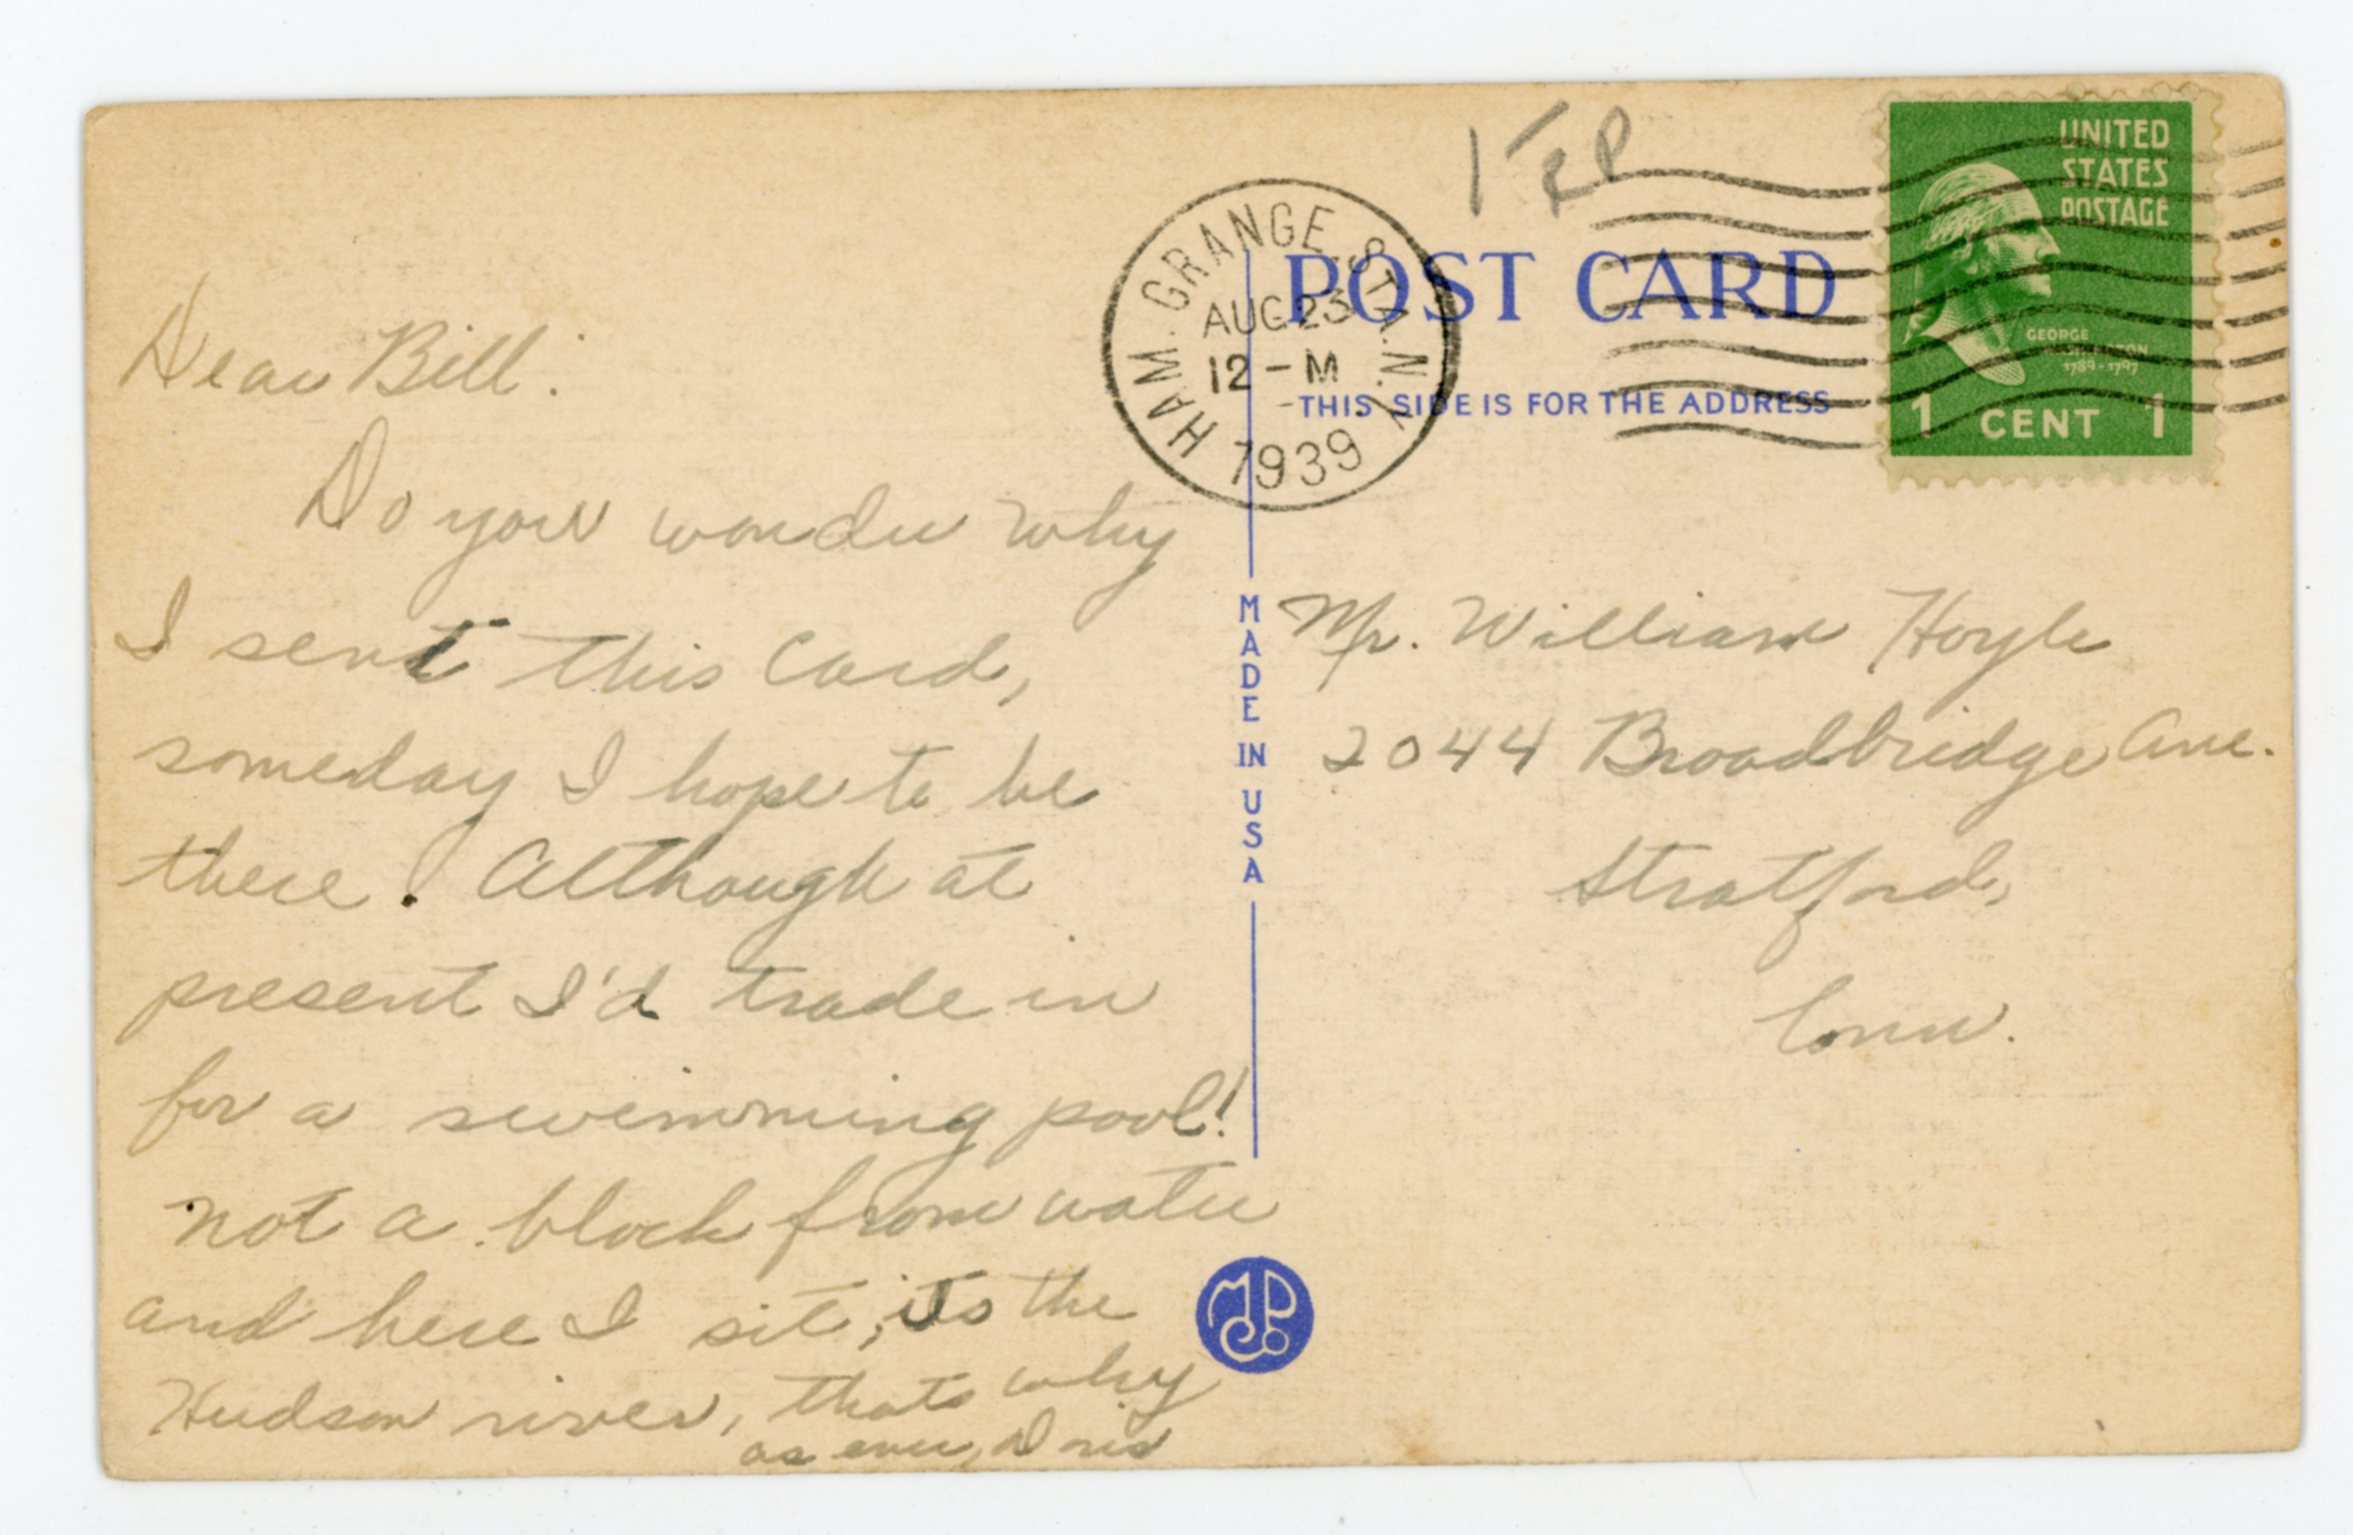 Dear Bill:
Do you wonder why
I sent this Card,
someday I hope to be
there. Although at
present I'd trade in
for a swimming pool!
not a block from water
and here I sit, its the
Hudson river, thats why
as ever, Doris
HAM. GRANGE STA. N.Y.
AUG 23
12 - M
1939
POST CARD
THIS SIDE IS FOR THE ADDRESS
UNITED
STATES
POSTAGE
GEORGE
WASHINGTON
1789-1797
1 CENT 1
MADE IN USA
Mr. William Hoyle
2044 Broadbridge Ave.
Stratford,
Conn.